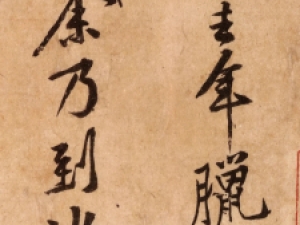 年臘
余乃到